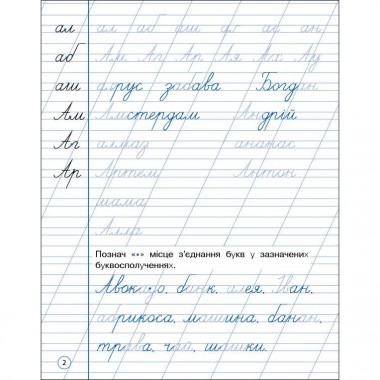 ал ал аб аш
аб Ам Аг Ар Ая Ах Ау
аш аґрус забава Богдан
Ам Амстердам Андрій
Аг алмаз ананас
Ар Артем Антон
Алла
Познач «•» місце з'єднання букв у зазначених
буквосполученнях.
Авокадо, банк, алея, Іван,
абрикоса, машина, банан,
трава, чай, шашки.
2